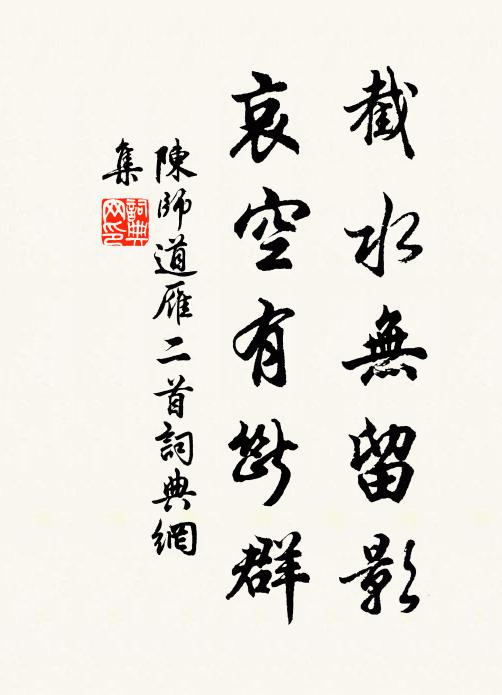 截水無留影
哀空有斷群
陳師道雁二首詞典網
集
詞典
网印